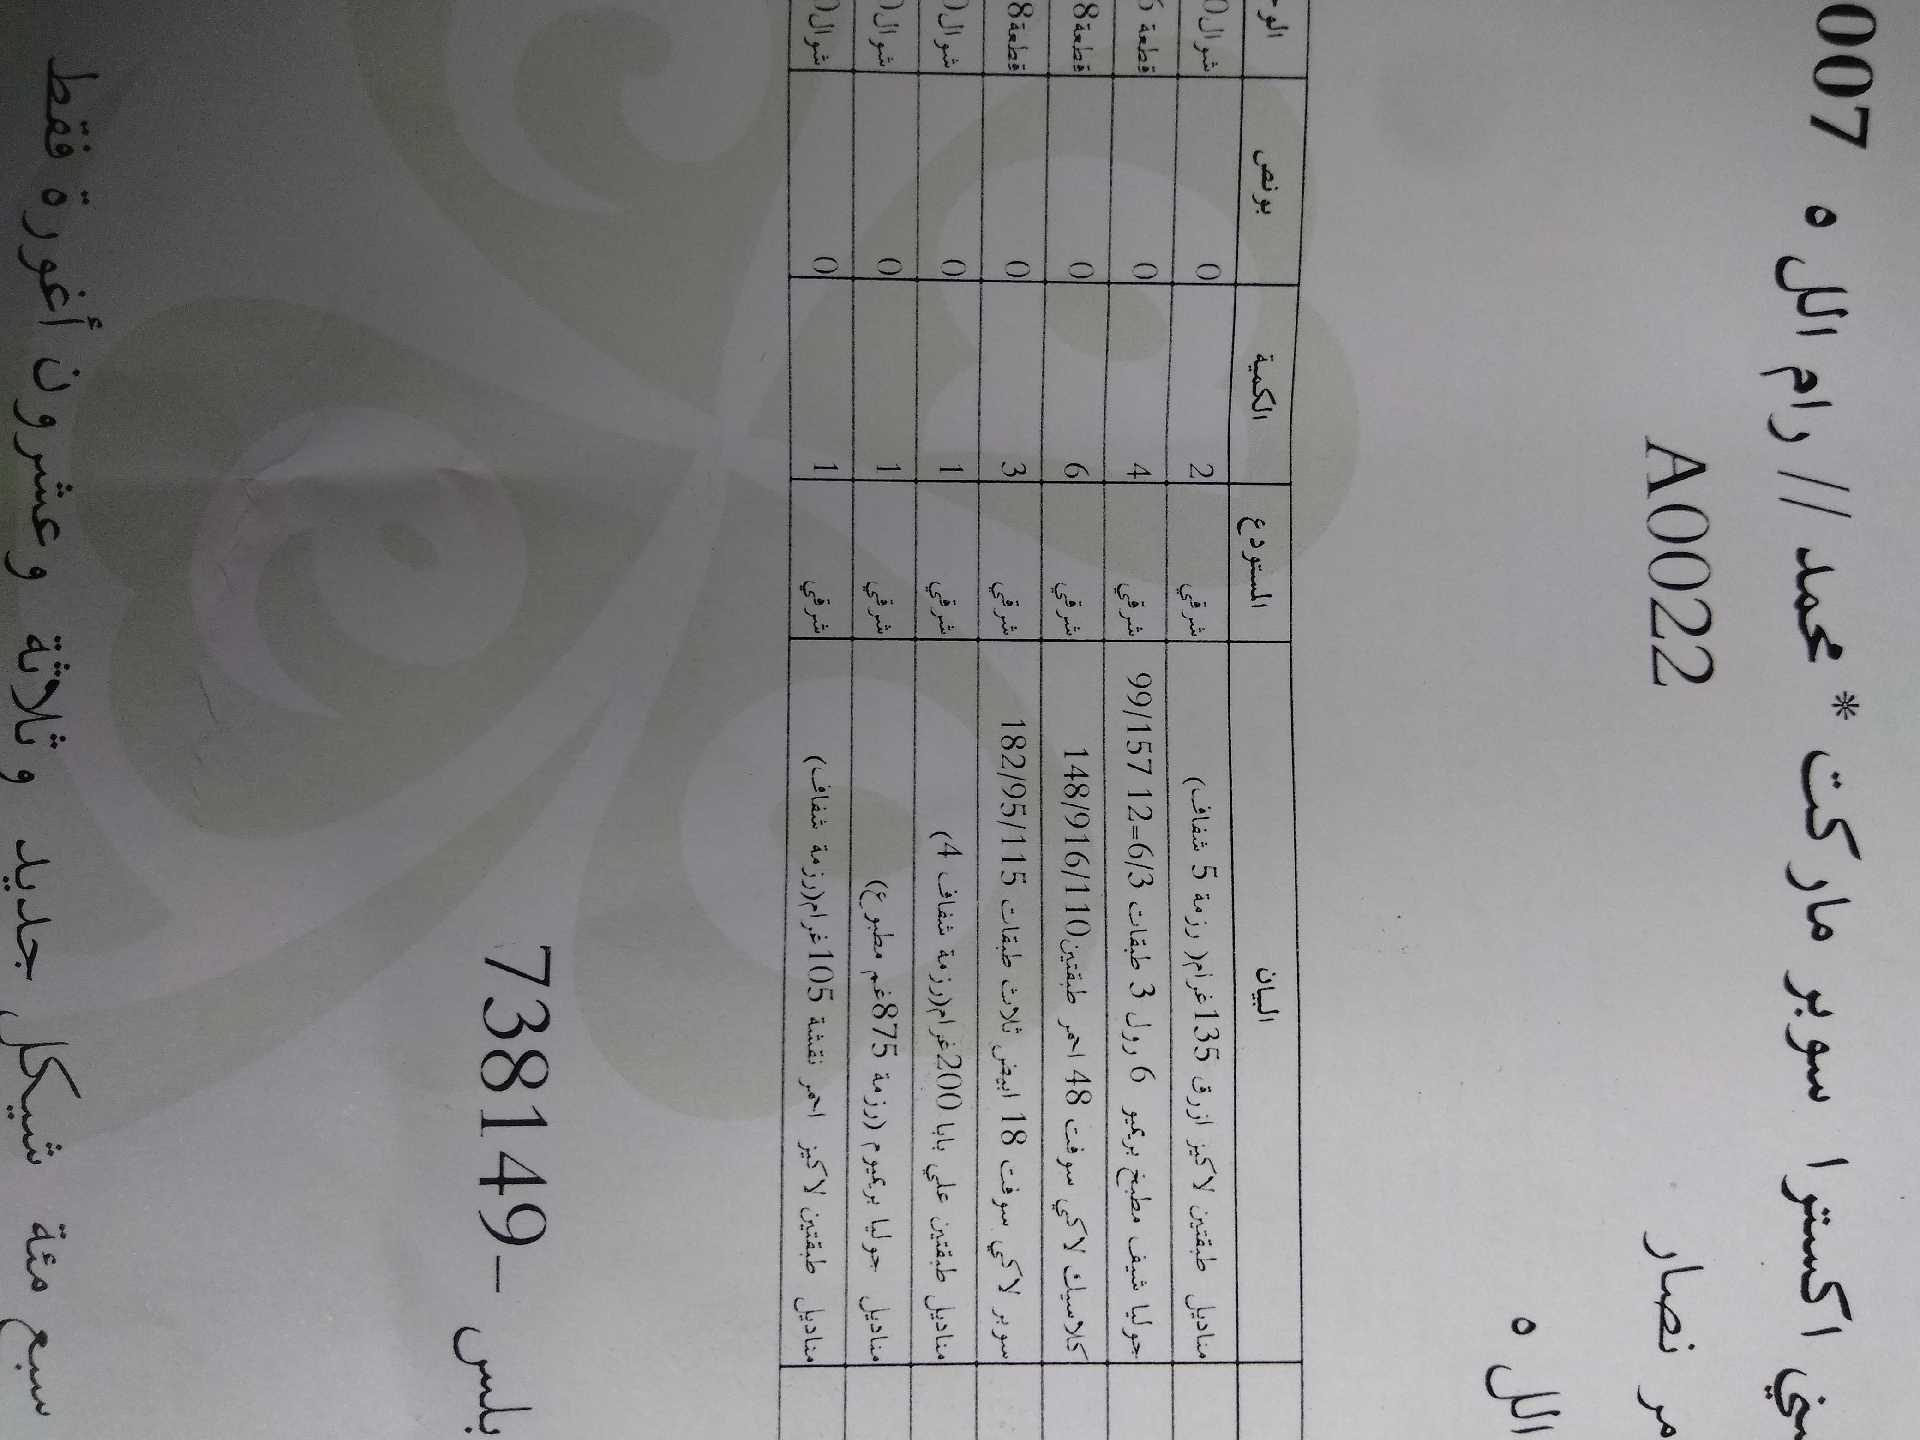 ني اكسترا سوبر ماركت * محمد // رام الل ه 007
مر نصار A0022
الل ه
البيان المستودع الكمية بونص الو
مناديل طبقتين لاكيز ازرق 135غرام( رزمة 5 شفاف) شرقي 2 0 شوال0
جوليا شيف مطبخ بريميو 6 رول 3 طبقات 6/3=12 99/157 شرقي 4 0 قطعة 6
كلاسيك لاكي سوفت 48 احمر طبقتين148/916/110 شرقي 6 0 قطعة8
سوبر لاكي سوفت 18 ابيض ثلاث طبقات 182/95/115 شرقي 3 0 قطعة8
مناديل طبقتين علي بابا 200غرام(رزمة شفاف 4) شرقي 1 0 شوال0
مناديل جوليا بريميوم (رزمة 875غم مطبوع) شرقي 1 0 شوال0
مناديل طبقتين لاكيز احمر نقشة 105غرام(رزمة شفاف) شرقي 1 0 شوال0
بلس –738149
سبع مئة شيكل جديد وثلاثة وعشرون أغورة فقط